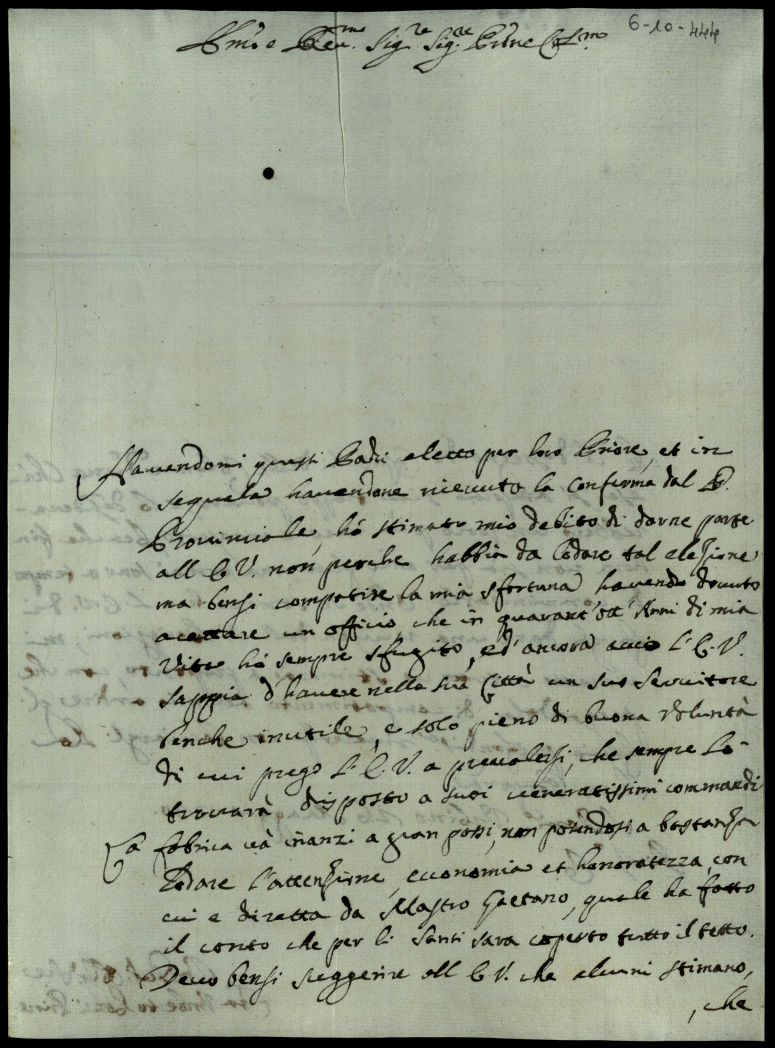 6-10-444
Ill.mo e Rev.mo Sig.re Sig.re Prône Col.mo
Havendomi questi Padri eletto per loro Priore, et in
sequela havendone ricevuto la conferma dal P.
Provinciale, hò stimato mio debito di darne parte
all E.V. non perche habbia da lodare tal elezione
ma bensi compatire la mia sfortuna havendo dovuto
accettare un officio che in quarant'ott' Anni di mia
Vita hò sempre sfugito, ed' ancora acciò L'E.V.
sappia d'havere nella sua Città un suo Servitore
benche inutile, e solo pieno di buona volontà
di cui prego L'E.V. a prevalersi, che sempre Lo
trovarà disposto a suoi veneratissimi commandi
La fabrica và inanzi a gran passi, non potendosi a bastanza
Lodare l'attenzione, economia et honoratezza con
cui e diretta da Mastro Gaetano, quale ha fatto
il conto che per li Santi sara coperto tutto il tetto.
Devo bensi suggerire all E.V. che alcuni stimano,
, che